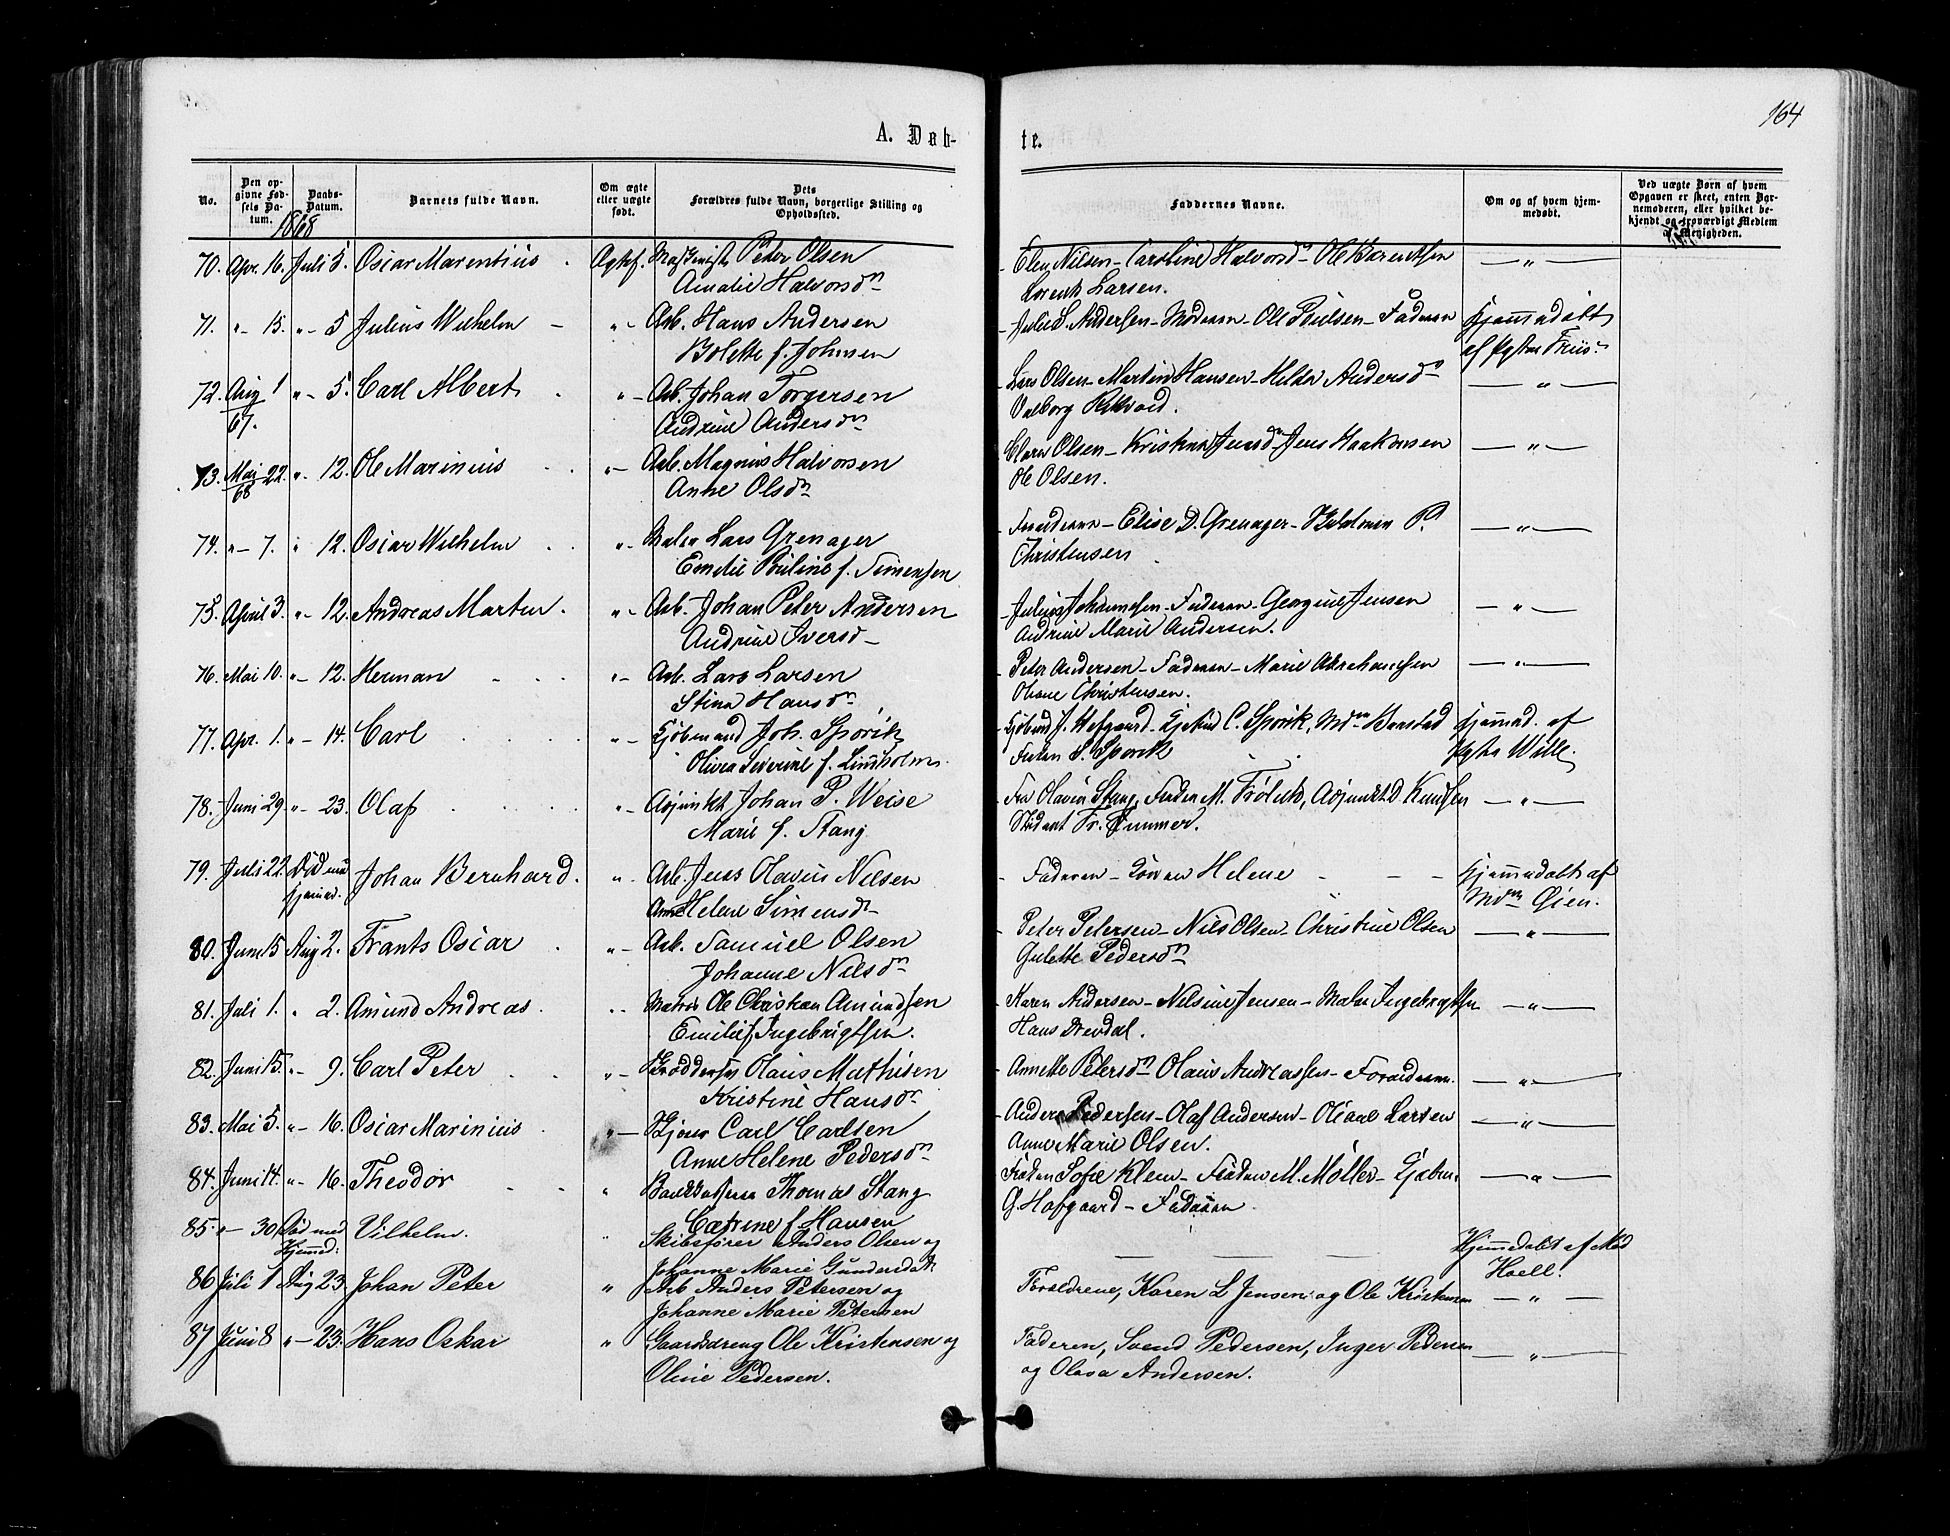 164
A. Døb-
te.
No.
Den op-
givne Fød-
sels Da-
tum.
Daabs-
Datum.
Barnets fulde Navn.
Om ægte
eller uægte
født.
Dets
Forældres fulde Navn, borgerlige Stilling og
Opholdssted.
Faddernes Navne.
Om og af hvem hjem-
medøbt.
Ved uægte Børn af hvem
Opgaven er skeet, enten Bar-
nemoderen, eller hvilket be-
kjendt og troværdigt Medlem
af Menigheden.
1868
70. Apr. 16. Juli 5. Oscar Marentius Ægtef. Peter Olsen Elen Nilsen - Caroline Halvorsdn Ole Berentsen — " —
Amalie Halvorsdn Lorents Larsen.
71. " - 15. " - 5 Julius Wilhelm " - Arb. Hans Andersen Julie L. Andersen - Moderen - Ole Poulsen - Faderen hjemmedøbt
Bolette f. Johnsen af Friis.
72. Aug 1 " - 5. Carl Albert " - Arb. Johan Torgersen Lars Olsen - Martin Hansen - Hilda Andersdn — " —
67. Andrine Andersdn Valborg
73. Mai 22. " - 12. Ole Marinius " - Arb. Magnus Halvorsen Olsen - Jens Haakonsen — " —
68 Anne Olsdn Ole Olsen.
74. " - 7. " 12. Oscar Wilhelm " - Maler Lars Grenager - Elise D. Grenager - P. — " —
Emilie Pouline f. Simensen Christensen
75. April 3. " - 12. Andreas Martin. " - Arb. Johan Peter Andersen Julius Johannesen - Faderen - Georgine Jensen — " —
Andrine Iversd Andrine Marie Andersen.
76. Mai 10. " - 12. Herman " - Arb. Lars Larsen Peter Andersen - Faderen - Marie Abrahamsen — " —
Stina Hansdn Oleane Christensen.
77. Apr. 1. " - 14. Carl " - Kjøbmand Joh. Spørck J. Hofgaard - C. Spørck, Mdm hjemmed. af
Olivia Severine f. Lindholm. Frøken S. Spørck Will.
78. Juni 29. " - 23. Olaf " - Adjunkt Johan P. Weise Fru Stang, Frøken M. Frølich, Adjunkt D. Knudsen — " —
Marie f. Stang Student Fr.
79. Juli 22. Død Johan Bernhard. " Arb. Jens Olavus Nilsen Faderen - Helene - - - hjemmedøbt af
hjemmed. Anne Helene Simensdr Mdm Gien.
80. Juni 15 Aug 2. Frants Oscar " - Arb. Samuel Olsen Peter Petersen - Nils Olsen - Christine Olsen — " —
Johanne Nilsdn Gulette Pedersdn
81. Juli 1. " 2. Amund Andreas. " Matros Ole Christian Amundsen Karen Andersen - Nilsine Jensen - Ingebrigtsen — " —
Emilie f. Ingebrigtsen. Hans
82. Juni 15. " - 9. Carl Peter " - Olaus Mathisen Annette Petersdn Olaus Andreassen - Forældrene. — " —
Kristine Hansdr
83. Mai 5. " - 16. Oscar Marinius " - Carl Carlsen Anders Pedersen - Olaf Andersen - Oleane Larsen — " —
Anne Helene Pedersdn Anne Marie Olsen.
84. Juni 14. " - 16. Theodor " Thomas Stang Frøken Sofie Klem - Frøken M. Møller - — " —
Catrine f. Hansen Hofgaard - Faderen
85. " - 30 Død med Vilhelm. " Skibsfører Anders Olsen og — — — Hjemmedøbt af Mad
Hjemmed: Johanne Marie Gundersdtr Hoell.
86 Juli 1 Aug 23. Johan Peter " Arb Anders Petersen og Forældrene, Karen L Jensen og Ole Kristensen — " —
Johanne Marie Petersen
87 Juni 8 " - 23. Hans Oskar " Gaardsdreng Ole Kristensen og Faderen, Svend Pedersen, Inger Pedersen — " —
Oline Pedersen. og Olava Andersen.